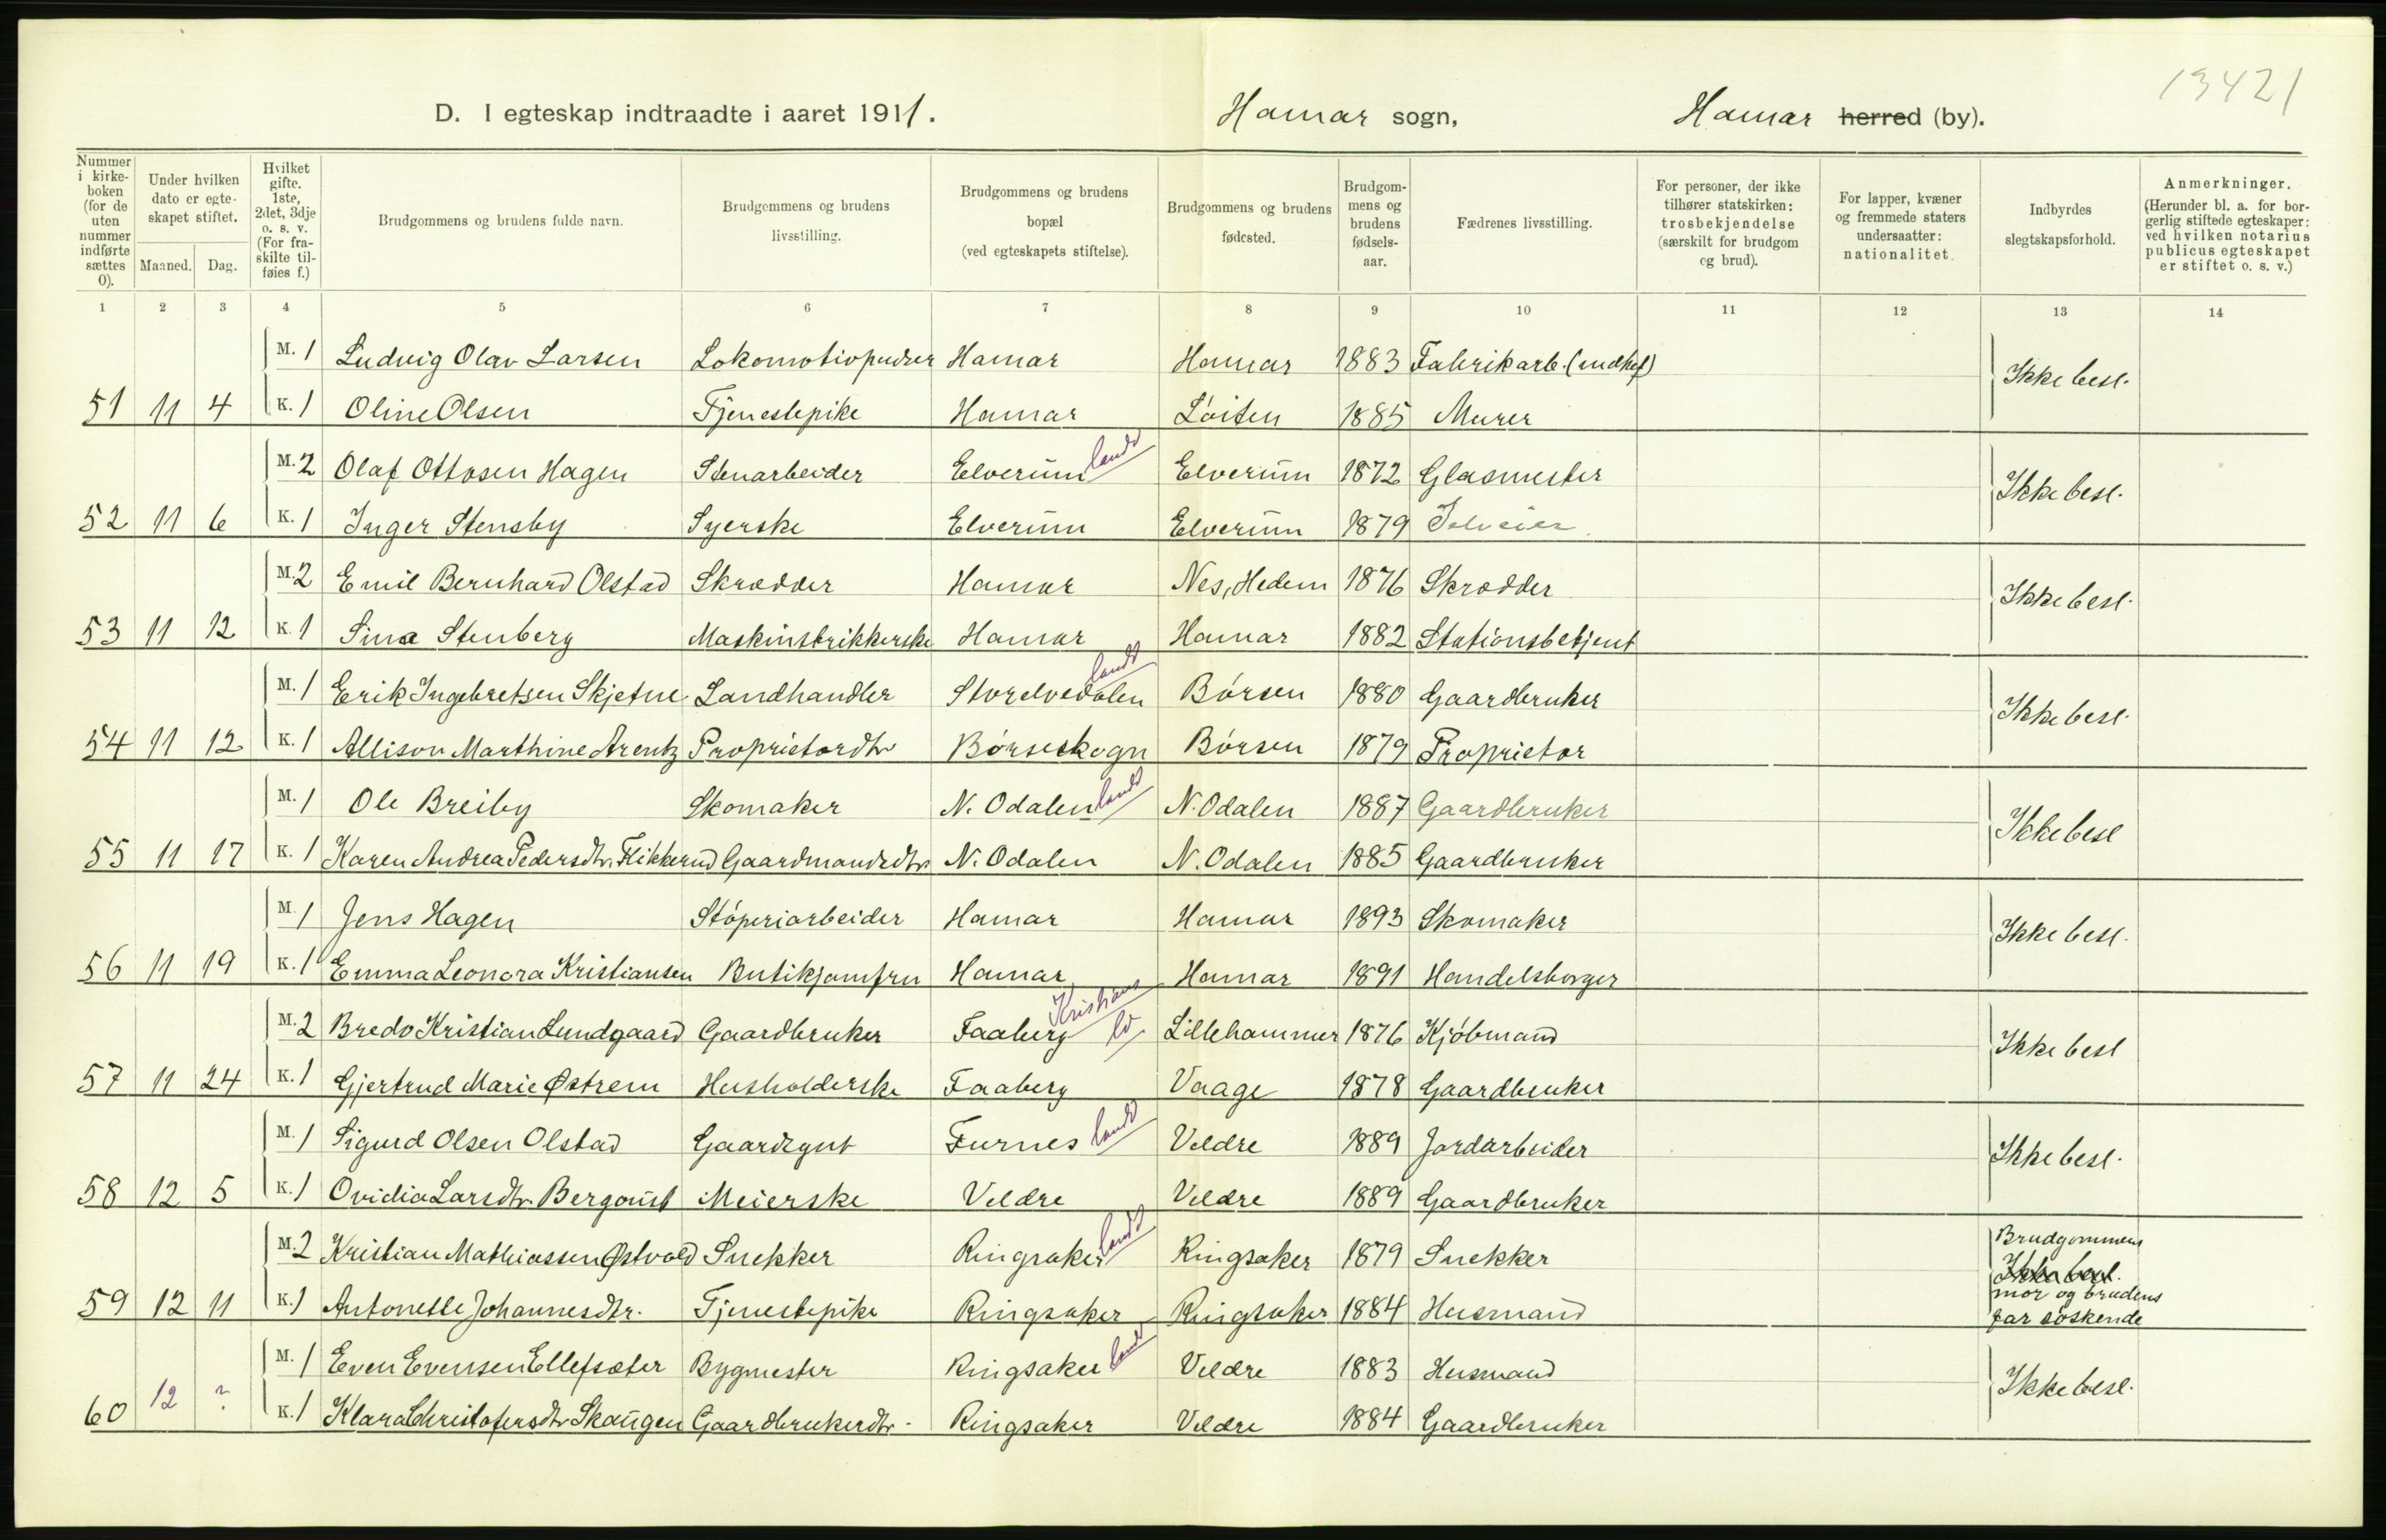 13421
D. I egteskap indtraadte i aaret 1911. Hamar sogn, Hamar herred (by).
Nummer i kirkeboken (for de uten nummer indførte sættes 0). Under hvilken dato er egteskapet stiftet. Maaned. Dag. Hvilket gifte. 1ste, 2det, 3dje o. s. v. (For fraskilte tilføies f.) Brudgommens og brudens fulde navn. Brudgommens og brudens livsstilling. Brudgommens og brudens bopæl (ved egteskapets stiftelse). Brudgommens og brudens fødested. Brudgommens og brudens fødselsaar. Fædrenes livsstilling. For personer, der ikke tilhører statskirken: trosbekjendelse (særskilt for brudgom og brud). For lapper, kvæner og fremmede staters undersaatter: nationalitet. Indbyrdes slegtskapsforhold. Anmerkninger. (Herunder bl. a. for borgerlig stiftede egteskaper: ved hvilken notarius publicus egteskapet er stiftet o. s. v.)
1 2 3 4 5 6 7 8 9 10 11 12 13 14
M. 1 Ludvig Olav Larsen Lokomotivpudser Hamar Hamar 1883 Fabrikarb. Ikke besl.
51 11 4 K. 1 Oline Olsen Tjenestepike Hamar Løiten 1885 Murer
M. 2 Olaf Ottosen Hagen Stenarbeider Elverum land Elverum 1872 Glasmester Ikke besl.
52 11 6 K. 1 Inger Stensby Syerske Elverum Elverum 1879 Selveier
M. 2 Emil Bernhard Olstad Skrædder Hamar Nes, Hedem 1876 Skrædder Ikke besl.
53 11 12 K. 1 Sina Stenberg Maskinstrikkerske Hamar Hamar 1882 Stationsbetjent
M. 1 Erik Ingebretsen Skjetne Landhandler Storelvedalen land Børsen 1880 Gaardbruker Ikke besl.
54 11 12 K. 1 Allison Marthine Arentz Proprietærdtr Børseskogn Børsen 1879 Proprietær
M. 1 Ole Breiby Skomaker N. Odalen land N. Odalen 1887 Gaardbruker Ikke besl
55 11 17 K. 1 Karen Andrea Pedersdtr. Flikkerud Gaardmandsdtr N. Odalen N. Odalen 1885 Gaardbruker
M 1 Jens Hagen Støperiarbeider Hamar Hamar 1893 Skomaker Ikke besl.
56 11 19 K. 1 Emma Leonora Kristiansen Butikjomfru Hamar Hamar 1891 Handelsborger
M. 2 Bredo Kristian Lundgaard Gaardbruker Faaberg Kristians ld Lillehammer 1876 Kjøbmand Ikke besl
57 11 24 K. 1 Gjertrud Marie Østrem Husholderske Faaberg Vaage 1878 Gaardbruker
M. 1 Sigurd Olsen Olstad Gaardsgut Furnes land Veldre 1889 Jordarbeider Ikke besl.
58 12 5 K. 1 Ovidia Larsdtr. Bergquist Meierske Veldre Veldre 1889 Gaardbruker
M. 2 Kristian Mathiassen Østvold Snekker Ringsaker land Ringsaker 1879 Snekker Brudgommens
Ikke besl.
59 12 11 K. 1 Antonette Johannesdtr. Tjenestepike Ringsaker Ringsaker 1884 Husmand mor og brudens
far søskende
M. 1 Even Evensen Ellefsæter Bygmester Ringsaker land Veldre 1883 Husmand Ikke besl.
60 12 ? K. 1 Klara Christofersdtr Skaugen Gaardbrukerdtr. Ringsaker Veldre 1884 Gaardbruker